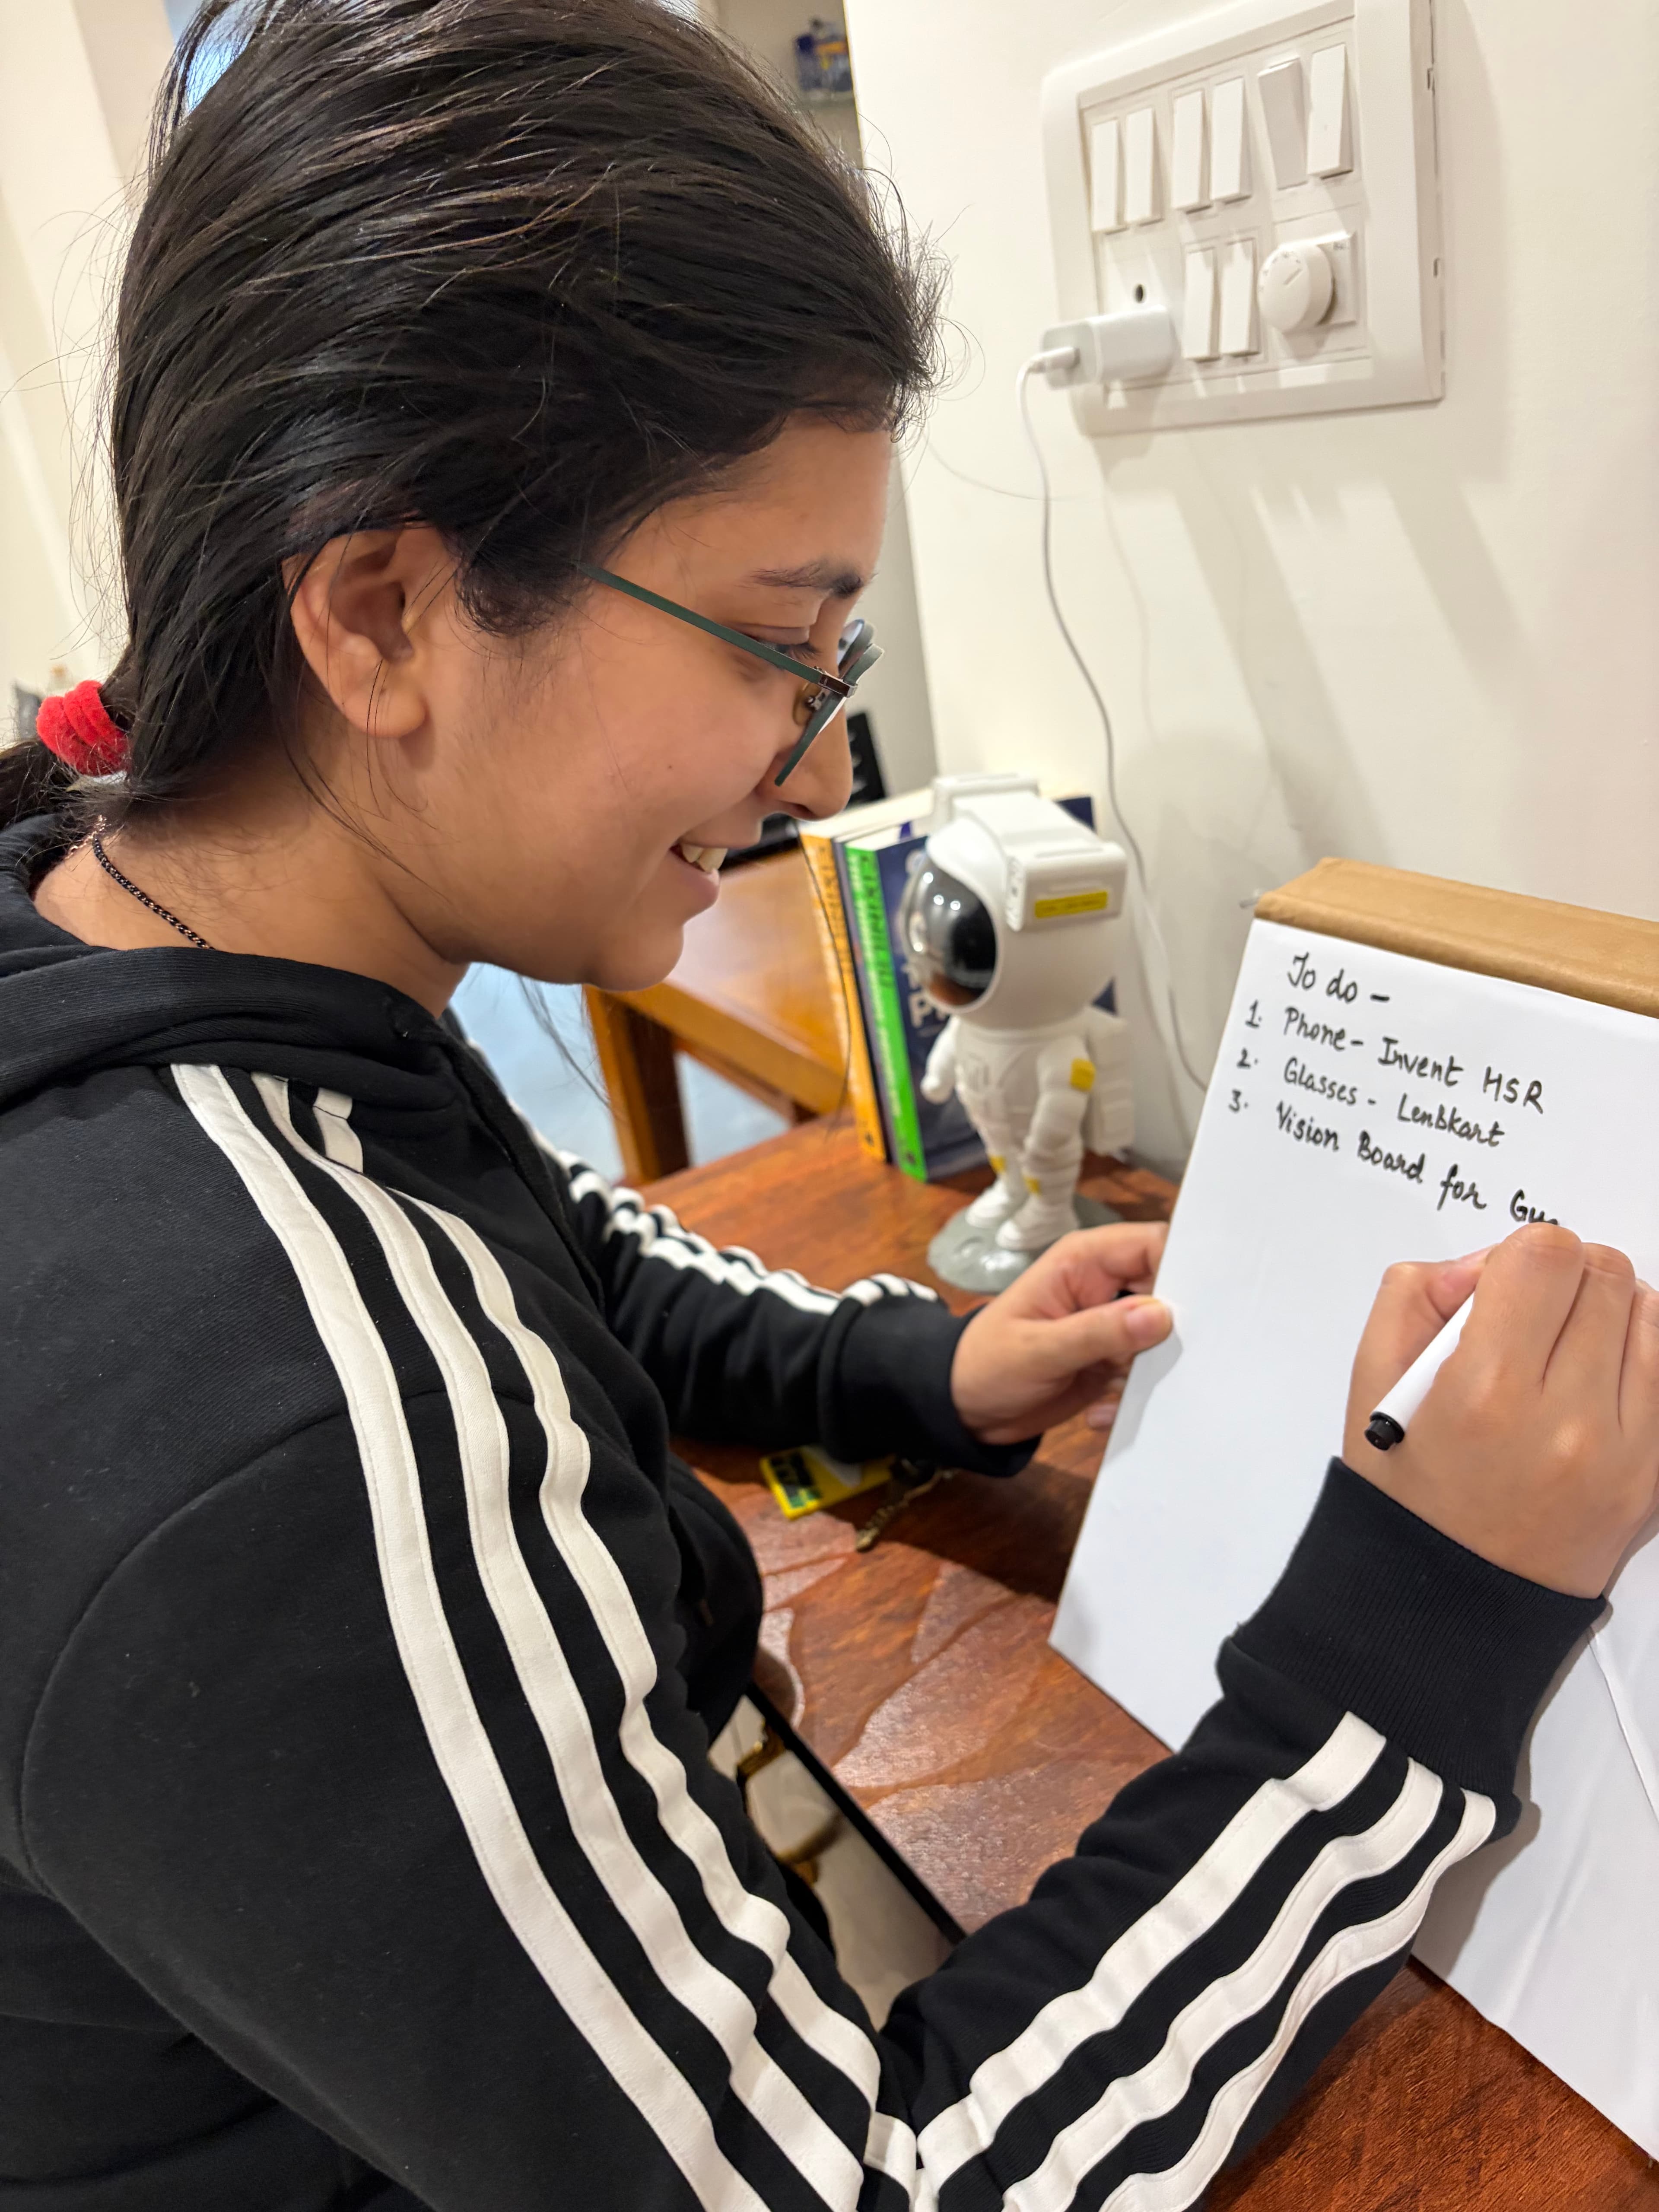 To do -
1. Phone - Invent HSR
2. Glasses - Lenskart
3. Vision Board for